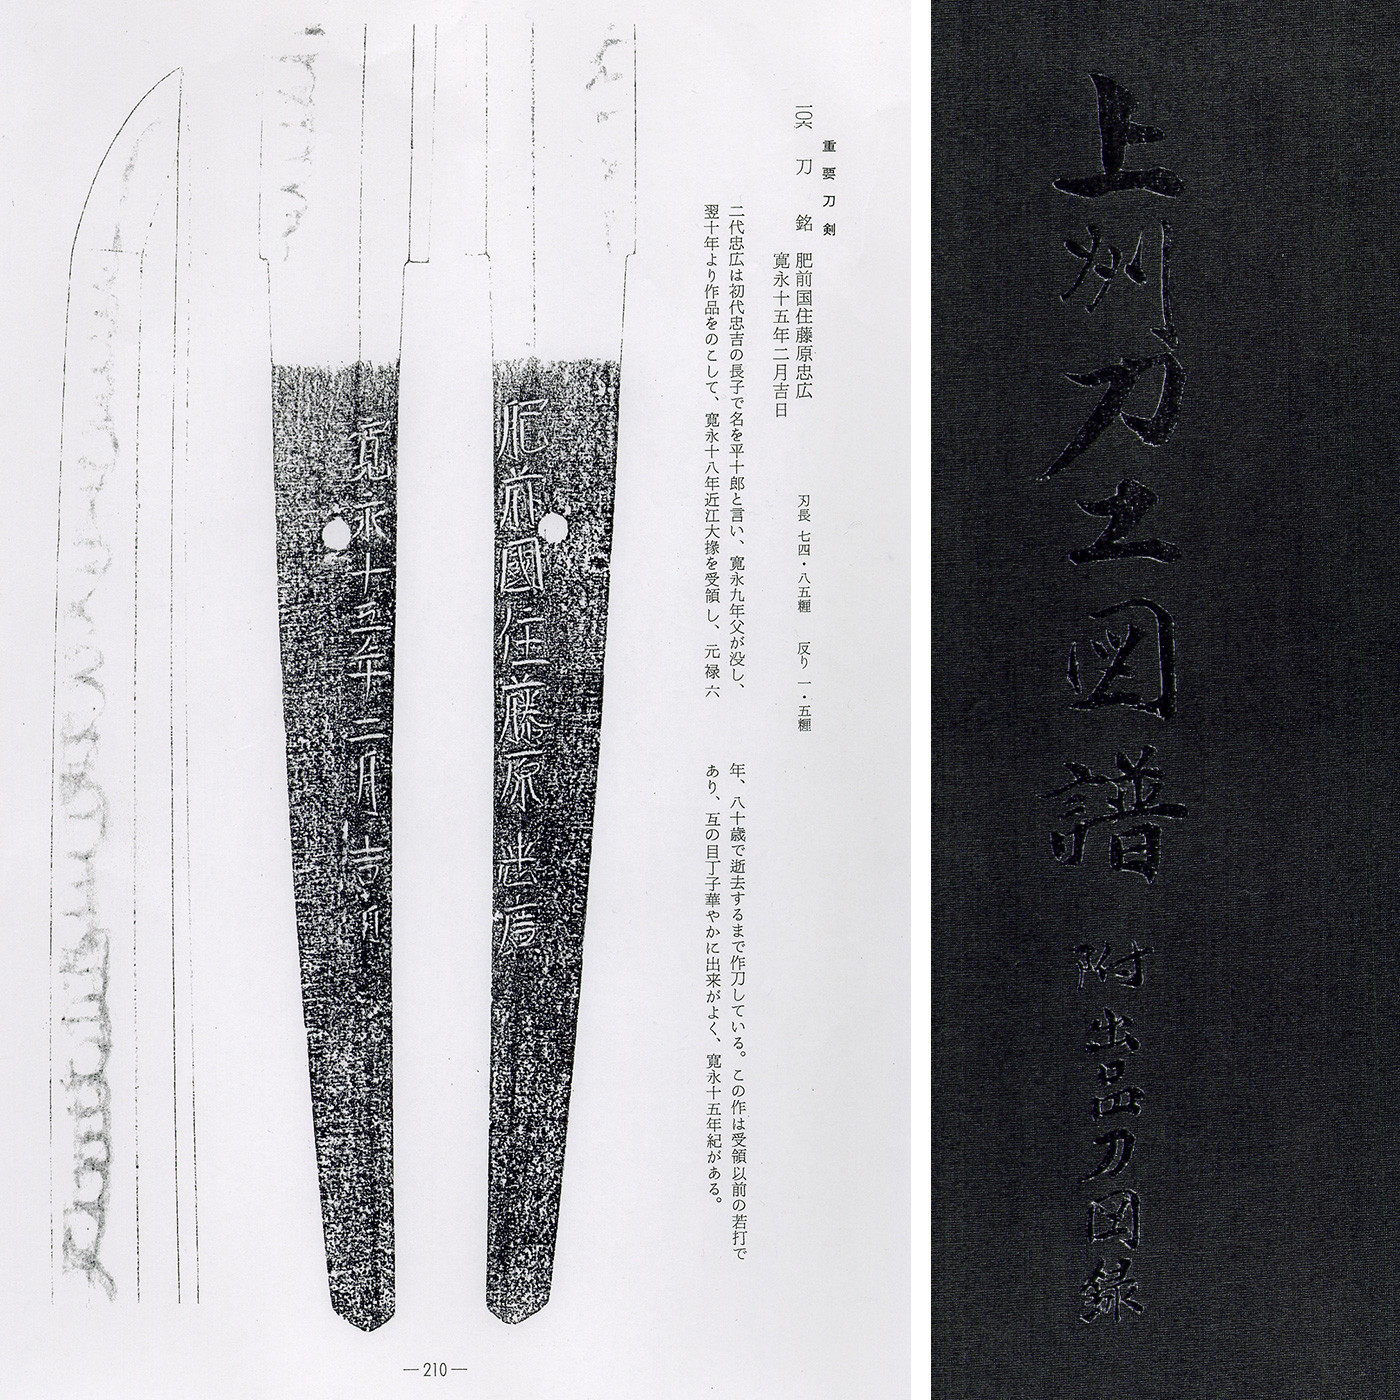 重要刀剣
一〇六 刀 銘 肥前国住藤原忠広
寛永十五年二月吉日
刃長 七四・八五糎 反り 一・五糎
二代忠広は初代忠吉の長子で名を平十郎と言い、寛永九年父が没し、
翌十年より作品をのこして、寛永十八年近江大掾を受領し、元禄六
年、八十歳で逝去するまで作刀している。この作は受領以前の若打で
あり、互の目丁子華やかに出来がよく、寛永十五年紀がある。
肥前國住藤原忠廣
寛永十五年二月吉日
—210—
上州刀工図譜 附出品刀図録